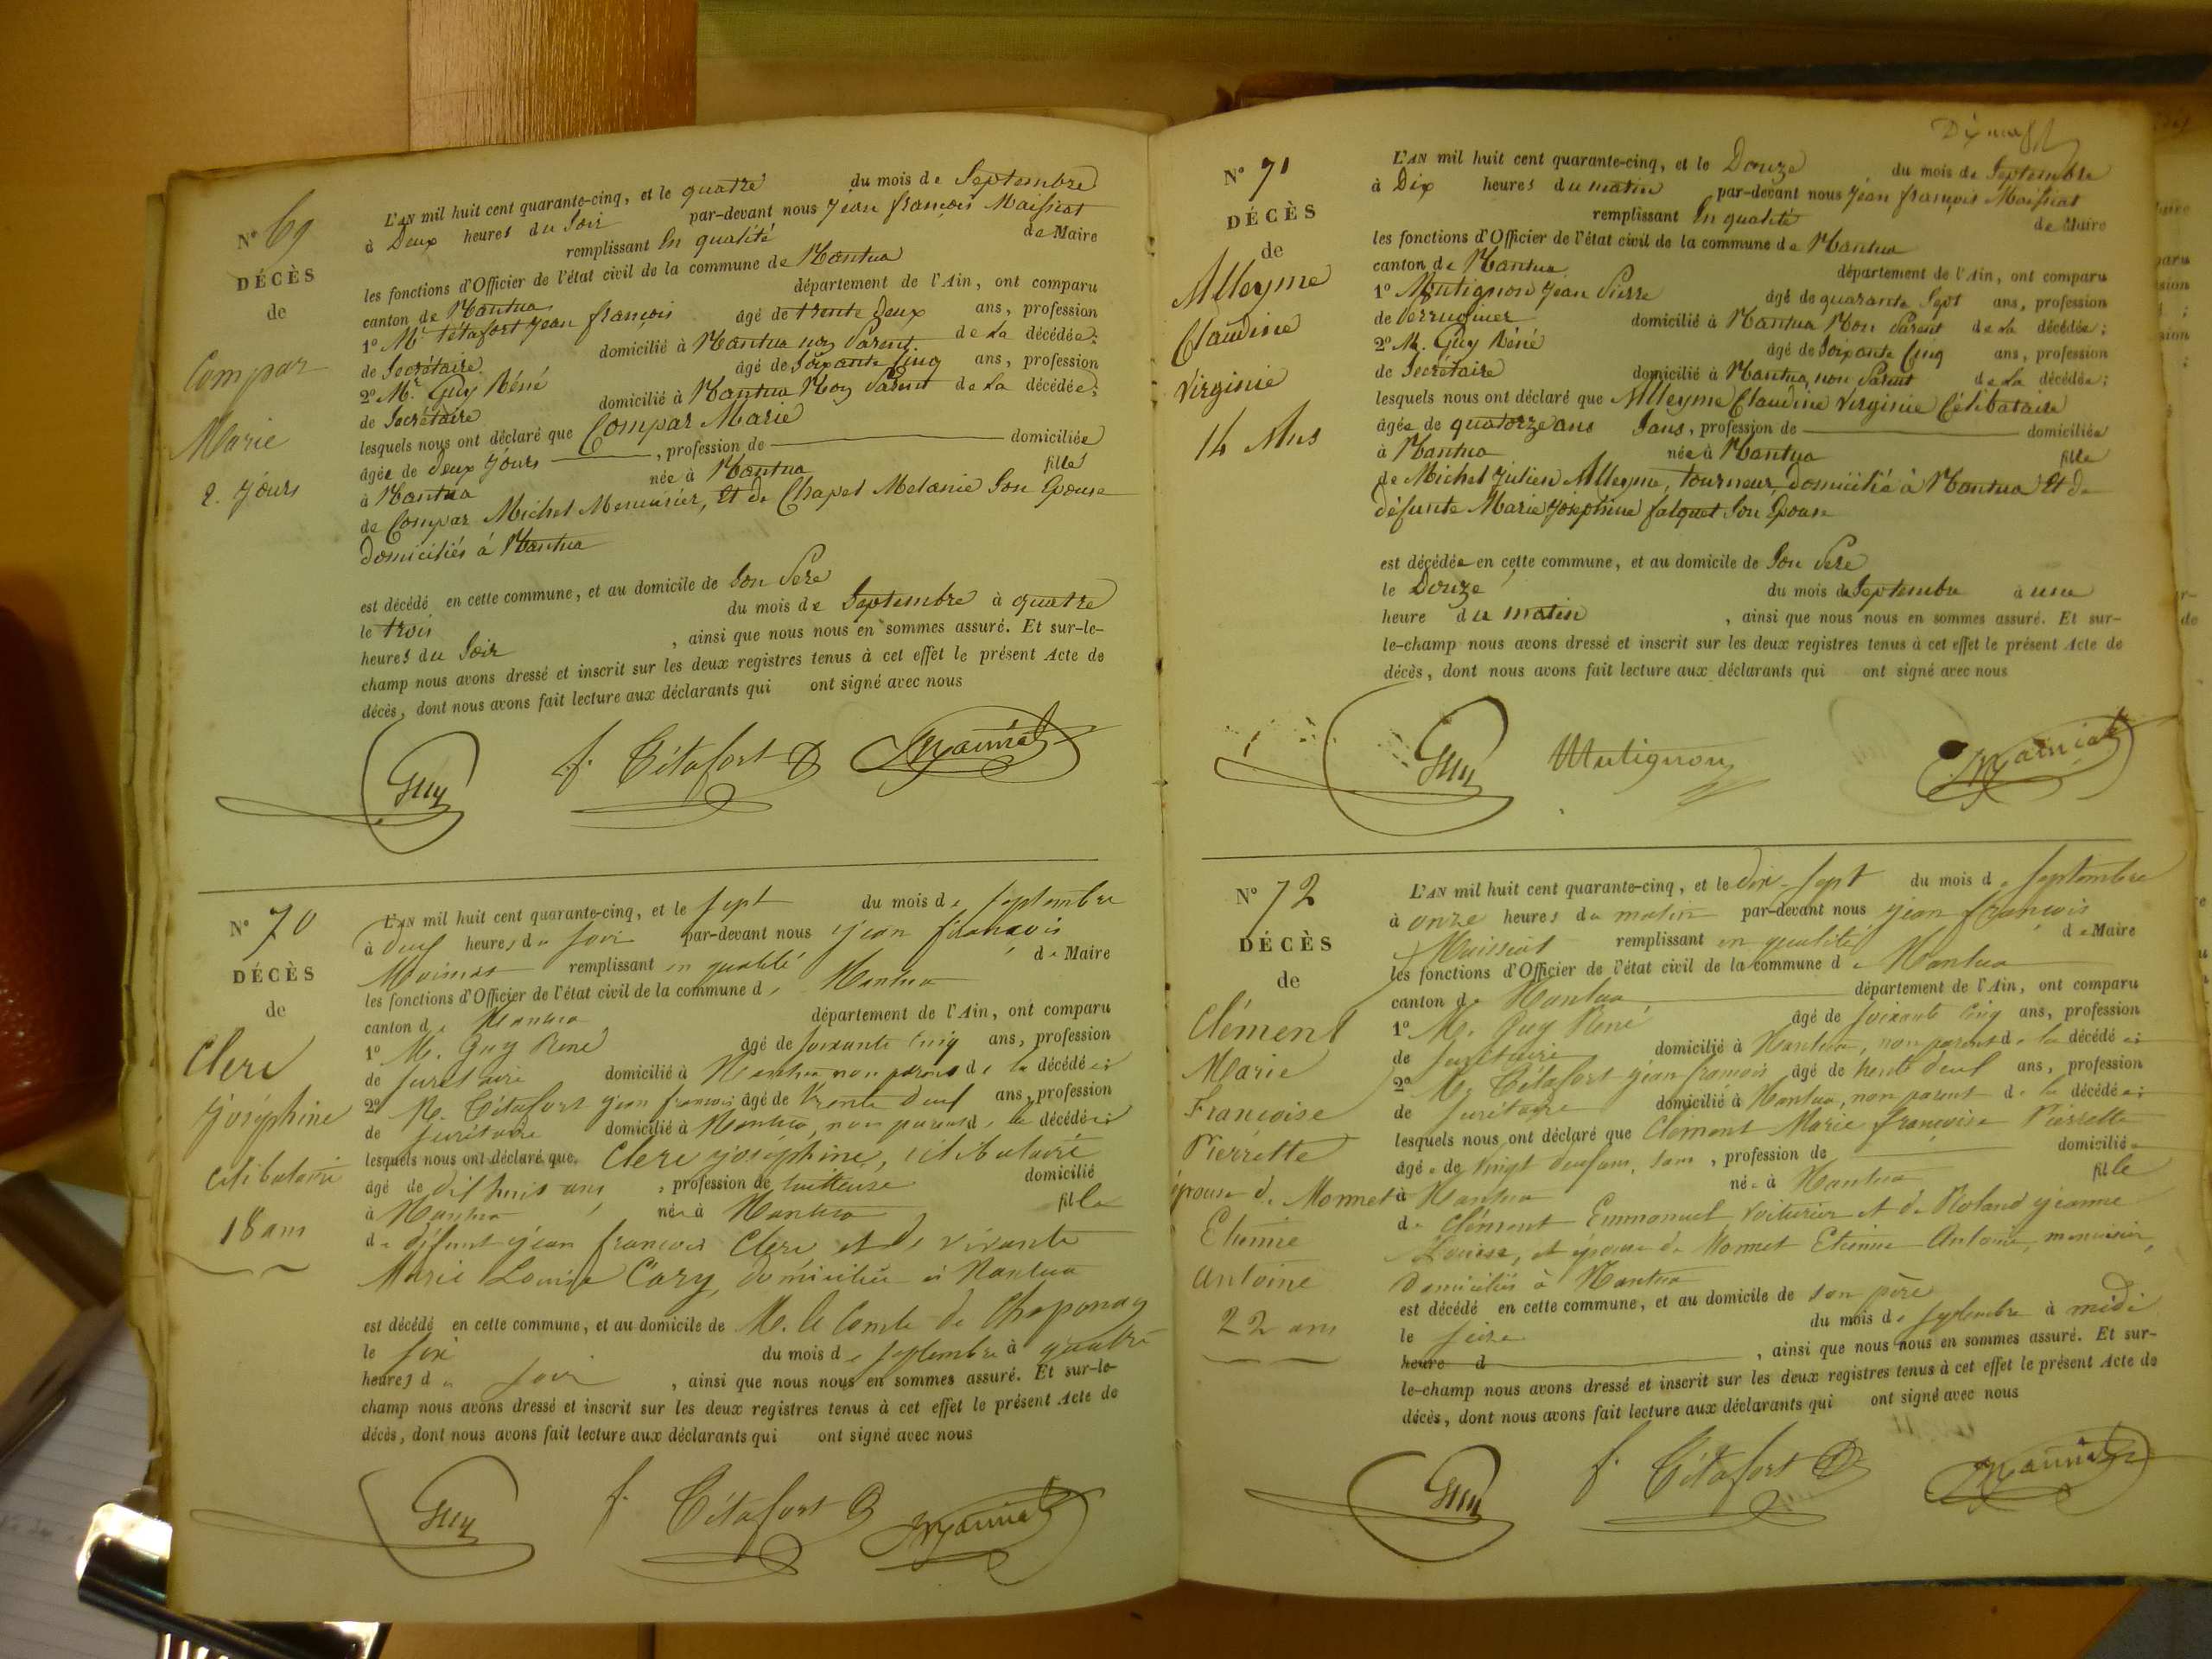 N° 69
DÉCÈS
de
Compar
Marie
2. Jours
L'AN mil huit cent quarante-cinq, et le quatre du mois de Septembre
à Deux heures du Soir par-devant nous Jean françois Maissiat
remplissant En qualité de Maire
les fonctions d'Officier de l'état civil de la commune de Nantua
canton de Nantua département de l'Ain, ont comparu
1° Mr. tétafort Jean françois âgé de trente Deux ans, profession
de Secrétaire domicilié à Nantua non Parent de La décédée;
2° Mr. Guy Réné âgé de Soixante Cinq ans, profession
de Secrétaire domicilié à Nantua Non Parent de La décédée;
lesquels nous ont déclaré que Compar Marie
âgée de deux Jours , profession de domiciliée
à Nantua née à Nantua fille
de Compar Michel Menuisier, Et de Chapel Melanie Son Epouse
Domiciliés à Nantua
est décédé en cette commune, et au domicile de Son Pere
le trois du mois de Septembre à quatre
heures du Soir , ainsi que nous nous en sommes assuré. Et sur-le-
champ nous avons dressé et inscrit sur les deux registres tenus à cet effet le présent Acte de
décès, dont nous avons fait lecture aux déclarants qui ont signé avec nous
Guy f. Tétafort Maissiat
N° 70
DÉCÈS
de
Clerc
Joséphine
Célibataire
18 ans
L'AN mil huit cent quarante-cinq, et le sept du mois de septembre
à deux heures du soir par-devant nous jean françois
Maissiat remplissant en qualité de Maire
les fonctions d'Officier de l'état civil de la commune de Nantua
canton de Nantua département de l'Ain, ont comparu
1° M. Guy René âgé de soixante cinq ans, profession
de secrétaire domicilié à Nantua non parent de la décédée;
2° M. Tétafort jean françois âgé de trente deux ans, profession
de secrétaire domicilié à Nantua, non parent de la décédée;
lesquels nous ont déclaré que Clerc joséphine, célibataire
âgé de dix huit ans , profession de domicilié
à Nantua née à Nantua fille
de défunt jean françois Clerc et de vivante
Marie Louise Cary, domiciliée à Nantua
est décédé en cette commune, et au domicile de M. le Comte de Chaponay
le six du mois de septembre à quatre
heures du soir , ainsi que nous nous en sommes assuré. Et sur-le-
champ nous avons dressé et inscrit sur les deux registres tenus à cet effet le présent Acte de
décès, dont nous avons fait lecture aux déclarants qui ont signé avec nous
Guy f. Tétafort Maissiat
N° 71
DÉCÈS
de
Alleyme
Claudine
Virginie
14 Ans
L'AN mil huit cent quarante-cinq, et le Douze du mois de Septembre
à Dix heures du matin par-devant nous Jean françois Maissiat
remplissant En qualité de Maire
les fonctions d'Officier de l'état civil de la commune de Nantua
canton de Nantua département de l'Ain, ont comparu
1° Mutignon Jean Pierre âgé de quarante Sept ans, profession
de domicilié à Nantua Non Parent de La décédée;
2° M. Guy Réné âgé de Soixante Cinq ans, profession
de Secrétaire domicilié à Nantua non Parent de La décédée;
lesquels nous ont déclaré que Alleyme Claudine Virginie Célibataire
âgée de quatorze ans Sans, profession de domiciliée
à Nantua née à Nantua fille
de Michel Julien Alleyme, tourneur, Domicilié à Nantua Et de
défunte Marie Joséphine falquet Son Epouse
est décédée en cette commune, et au domicile de Son Pere
le Douze du mois de Septembre à une
heure du matin , ainsi que nous nous en sommes assuré. Et sur-
le-champ nous avons dressé et inscrit sur les deux registres tenus à cet effet le présent Acte de
décès, dont nous avons fait lecture aux déclarants qui ont signé avec nous
Guy Mutignon Maissiat
N° 72
DÉCÈS
de
Clément
Marie
Françoise
Pierrette
épouse de Monnet
Etienne
Antoine
22 ans
L'AN mil huit cent quarante-cinq, et le dix-sept du mois de septembre
à onze heures du matin par-devant nous jean françois
Maissiat remplissant en qualité de Maire
les fonctions d'Officier de l'état civil de la commune de Nantua
canton de Nantua département de l'Ain, ont comparu
1° M. Guy René âgé de soixante cinq ans, profession
de secrétaire domicilié à Nantua, non parent de la décédée;
2° M. Tétafort jean françois âgé de trente deux ans, profession
de secrétaire domicilié à Nantua, non parent de la décédée;
lesquels nous ont déclaré que Clément Marie françoise Pierrette
âgée de vingt deux ans, sans , profession de domiciliée
à Nantua née à Nantua fille
de Clément Emmanuel, voiturier et de Roland jeanne
Louise, et épouse de Monnet Etienne Antoine, menuisier,
domiciliés à Nantua
est décédé en cette commune, et au domicile de son père
le seize du mois de septembre à midi
heure d , ainsi que nous nous en sommes assuré. Et sur-
le-champ nous avons dressé et inscrit sur les deux registres tenus à cet effet le présent Acte de
décès, dont nous avons fait lecture aux déclarants qui ont signé avec nous
Guy f. Tétafort Maissiat